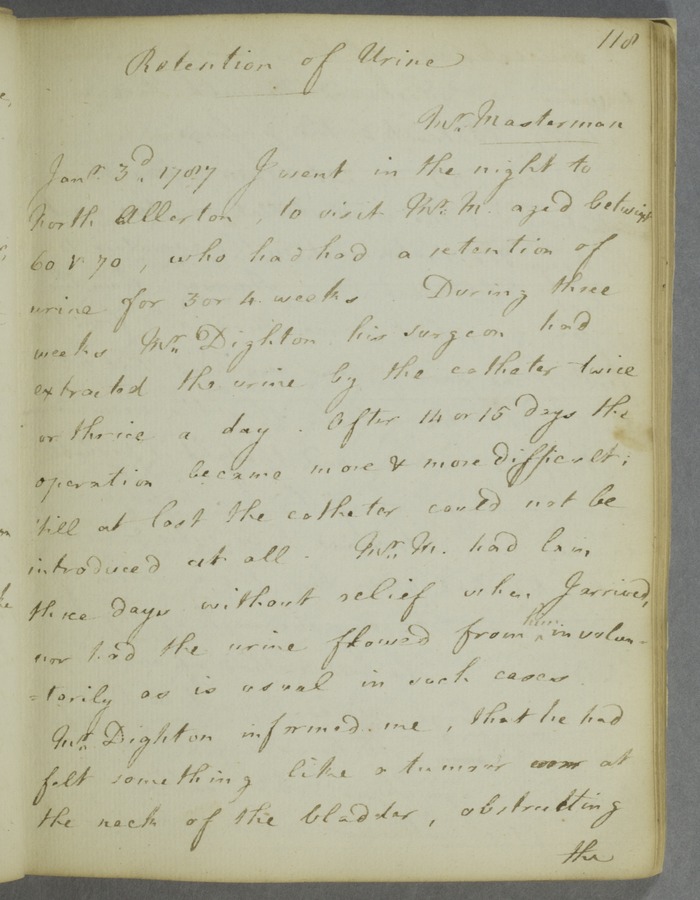 118
Retention of Urine
Mr. Masterman
Janr. 3d. 1787 I went in the night to
North Allerton, to visit Mr. M. aged betwixt
60 & 70, who had had a retention of
urine for 3 or 4 weeks. During three
weeks Mr. Dighton his surgeon had
extracted the urine by the catheter twice
or thrice a day. After 14 or 15 days the
operation became more & more difficult;
'till at last the catheter could not be
introduced at all. Mr. M. had lain
three days without relief when I arrived,
nor had the urine flowed from him involun-
-tarily as is usual in such cases.
Mr. Dighton informed me, that he had
felt something like a tumour at
the neck of the bladder, obstructing
the